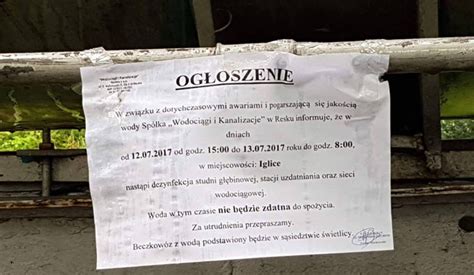 "Wodociągi i Kanalizacje"
OGŁOSZENIE
W związku z dotychczasowymi awariami i pogarszającą się jakością
wody Spółka „Wodociągi i Kanalizacje" w Resku informuje, że w
dniach
od 12.07.2017 od godz. 15:00 do 13.07.2017 roku do godz. 8:00,
w miejscowości: Iglice
nastąpi dezynfekcja studni głębinowej, stacji uzdatniania oraz sieci
wodociągowej.
Woda w tym czasie nie będzie zdatna do spożycia.
Za utrudnienia przepraszamy.
Beczkowóz z wodą podstawiony będzie w sąsiedztwie świetlicy.